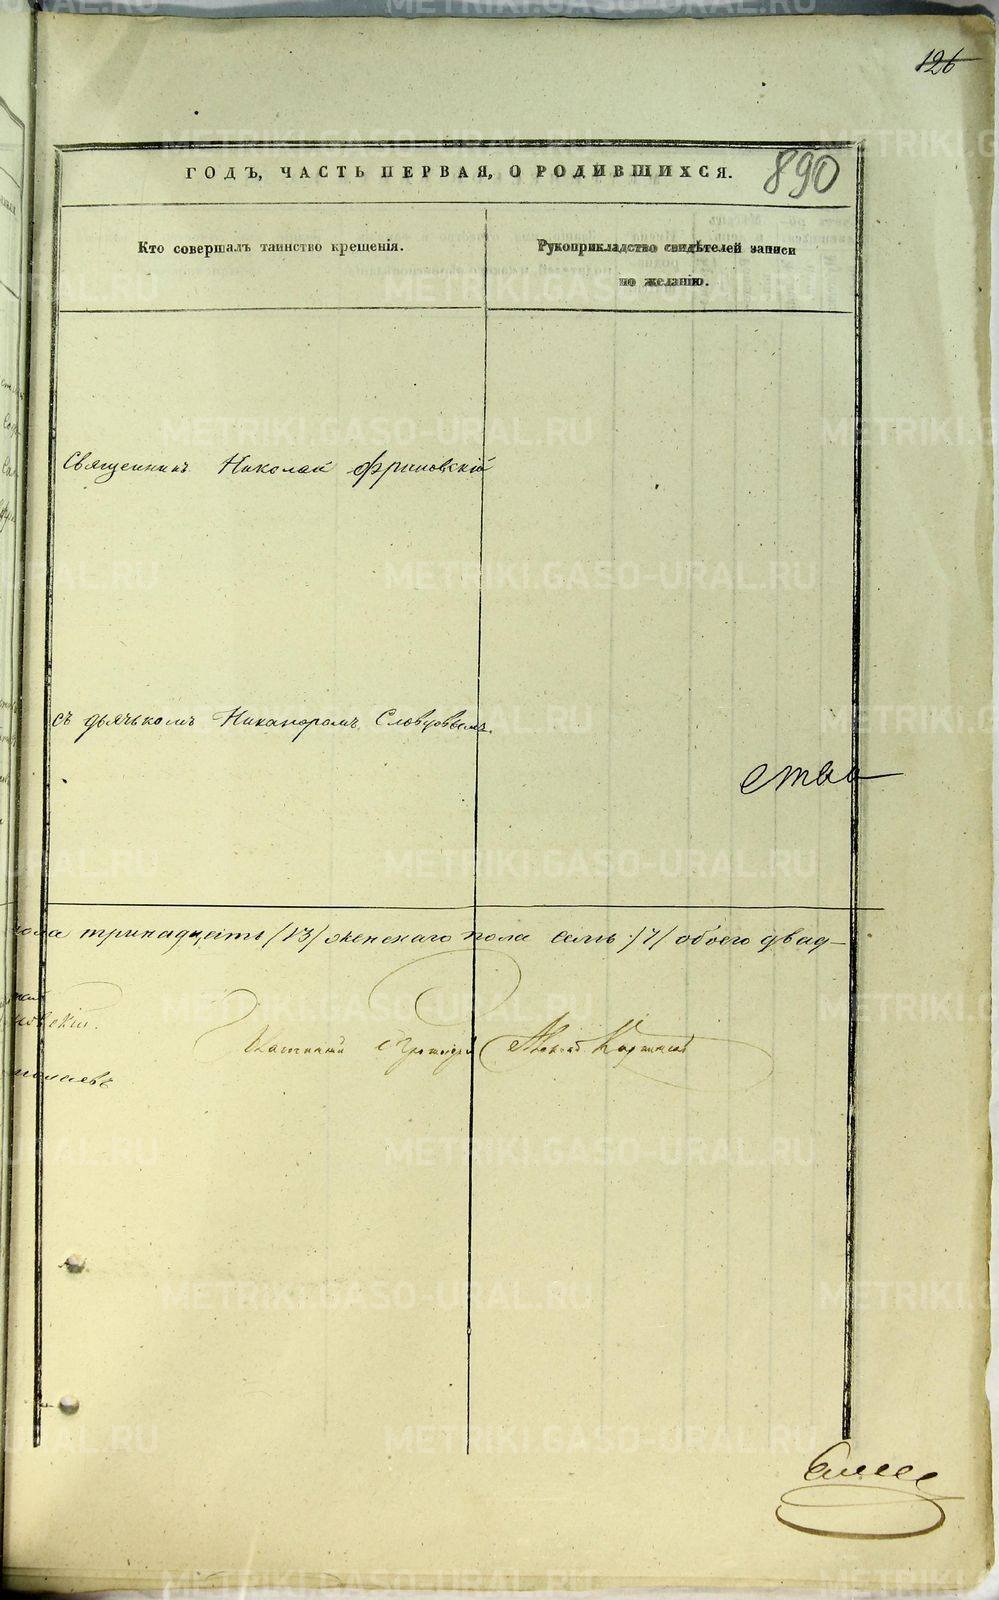 126
ГОДЪ, ЧАСТЬ ПЕРВАЯ, О РОДИВШИХСЯ.
890
Кто совершалъ таинство крещенія.
Рукоприкладство свидѣтелей записи
по желанію.
Священникъ Николай Фриновскій
съ дьячькомъ Никаноромъ Словцовымъ.
ства
пола тринадцать /13/ женскаго пола семь /7/ обоего двад-
METRIKI.GASO-URAL.RU